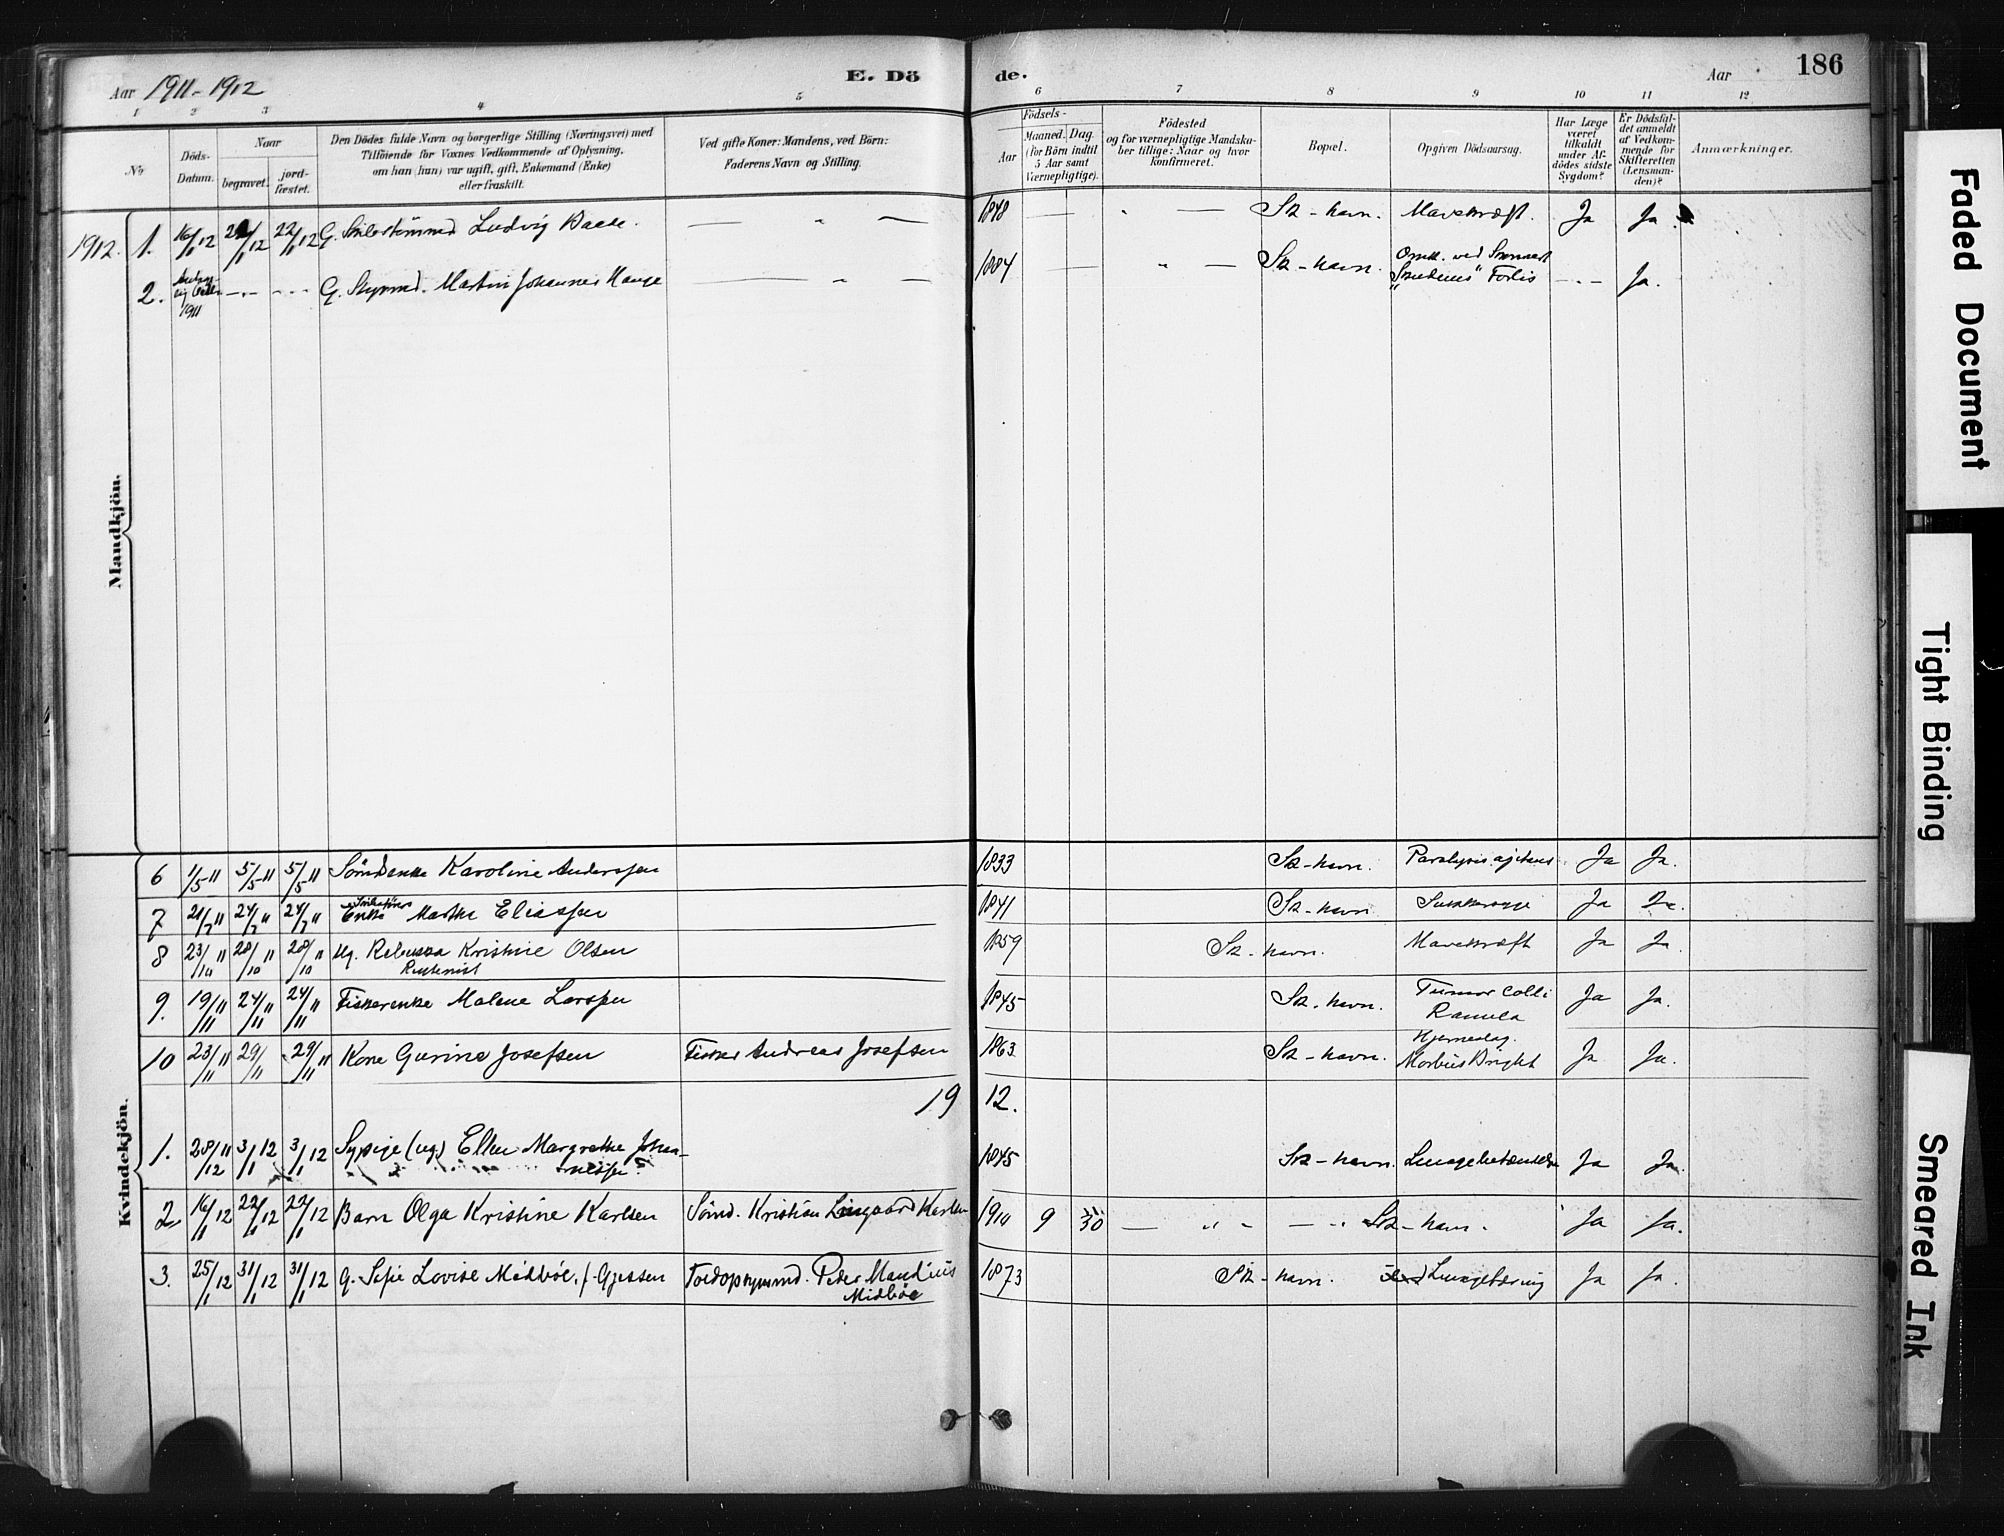 Aar 1911-1912
E. Dö
de.
Aar
186
1 2 3 4 5 6 7 8 9 10 11 12
No
Döds-
Datum.
Naar
begravet.
jord-
fæstet.
Den Dödes fulde Navn og borgerlige Stilling (Næringsvei) med
Tilföiende for Voxnes Vedkommende af Oplysning,
om han (hun) var ugift, gift, Enkemand (Enke)
eller fraskilt.
Ved gifte Koner: Mandens, ved Börn:
Faderens Navn og Stilling.
Födsels-
Aar
Maaned. Dag.
(for Börn indtil
5 Aar samt
Værnepligtige).
Födested
og for værnepligtige Mandska-
ber tillige: Naar og hvor
konfirmeret.
Bopæl.
Opgiven Dödsaarsag.
Har Læge
været
tilkaldt
under Af-
dödes sidste
Sygdom?
Er Dödsfal-
det anmeldt
af Vedkom-
mende for
Skifteretten
(Lensman-
den)?
Anmærkninger.
Mandkjön.
1912. 1. 16/1 12 22/1 12 22/1 12 G. Ludvig — " — 1848 — " — Sk-havn. Mavekræft. Ja Ja.
2. 1911 G. Styrmd. Martin Johannes Hauge — " — 1884 — " — Sk-havn. Omk. ved Forlis Ja.
Kvindekjön.
6 1/5 11 5/5 11 5/5 11 Sömdsenke Karoline Anderssen 1833 Sk-havn. Paralysis agitans Ja Ja.
7 21/7 11 24/7 11 24/7 11 Enke Marthe Eliassen 1841 Sk-havn. Ja Ja.
8 23/10 11 28/10 11 28/10 11 Ug. Rebekka Kristine Olsen 1859 Sk-havn. Mavekræft Ja Ja.
9. 19/11 11 24/11 11 24/11 11 Fiskerenke Malene Larssen 1845 Sk-havn. Tumor Colli Ja Ja.
10 23/11 11 29/11 29/11 11 Kone Gurine Josefsen Fisker Andreas Josefsen 1863 Sk-havn. Hjerneslag.
Morbus Bright Ja Ja.
19 12.
1. 28/12 11 3/1 12 3/1 12 Sypige (ug.) Ellen Margrethe Johan-
nessen 1845 Sk-havn. Lungebetændelse Ja Ja.
2 16/1 12 22/1 12 22/1 12 Barn Olga Kristine Karlsen Sömd. Kristian Lingaard Karlsen 1910 9 30 — " — Sk-havn. Ja Ja.
3. 25/1 12 31/1 12 31/1 12 G. Sofie Lovise Midböe, f. Gjessen Peder Mandius
Midböe 1873 Sk-havn. Lungetæring Ja Ja.
Faded Document
Tight Binding
Smeared Ink